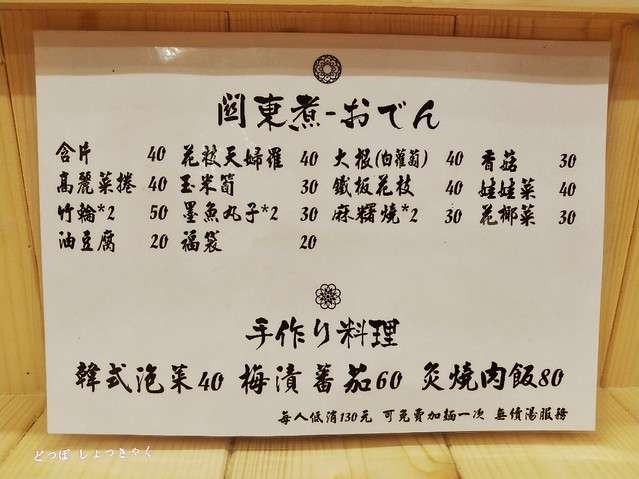 關東煮-おでん
含片 40 花枝天婦羅 40 大根(白蘿蔔) 40 香菇 30
高麗菜捲 40 玉米筍 30 鐵板花枝 40 娃娃菜 40
竹輪*2 50 墨魚丸子*2 30 麻糬燒*2 30 花椰菜 30
油豆腐 20 福袋 20
手作り料理
韓式泡菜40 梅漬蕃茄60 炙燒肉飯80
每人低消130元 可免費加麵一次 無續湯服務
どつぼ しょつきゃく